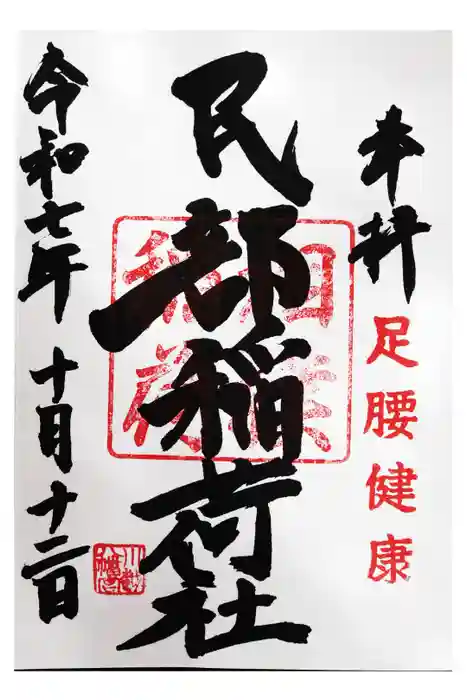 奉拝
足腰健康
民部稲荷社
令和七年 十月十二日